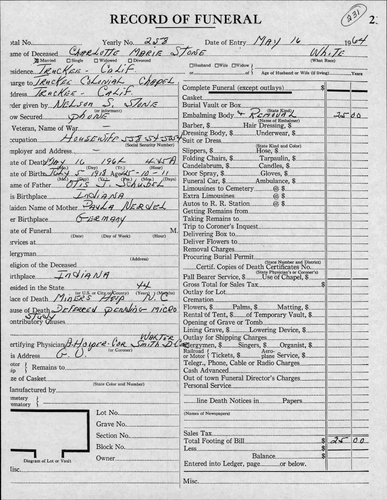 231
RECORD OF FUNERAL
2
otal No. Yearly No. 258 Date of Entry MAY 16 1964
ame of Deceased CHARLOTTE MARIE STONE WHITE
(What Race)
Married Single Widowed Divorced
Husband Wife Widow
esidence TRUCKEE - CALIF. or of Age of Husband or Wife (if living) Years
arge to TRUCKEE COLONIAL CHAPEL
ddress TRUCKEE - CALIF.
rder given by NELSON S. STONE
ow Secured PHONE
Veteran, Name of War
ccupation HOUSEWIFE
(Social Security Number)
mployer and Address
ate of Death MAY 16 1964 4:45 A.
ate of Birth JULY 5 1918 45-10-11
ame of Father OTIS J. SCHUBEL
is Birthplace INDIANA
aiden Name of Mother PAULA
er Birthplace GERMANY
ate of Funeral M.
(Date) (Day of Week) (Hour)
rvices at
lergyman
(Address)
eligion of the Deceased
irthplace INDIANA
esided in the State 44
(or U.S. or City or County) (Years) (Months)
lace of Death MINERS HOSP N.C
ause of Death DEFERED PENDING MICRO
STUDY
ontributory Causes
ertifying Physician B. HOOPER-COR. WALTER SMITH D COR
(or Coroner)
is Address G.V.
Remains to
or
ze of Casket
(State Color and Number)
anufactured by
metery
ematory
Lot No.
Grave No.
Section No.
Block No.
Owner
Diagram of Lot or Vault
isc.
Complete Funeral (except outlays) $
Casket
(State Kind)
Burial Vault or Box
(State Kind)
Embalming Body & REMOVAL 25 00
(Name of Embalmer)
Barber, $ Hair Dressing, $
Dressing Body, $ Underwear, $
Suit or Dress
(State Kind and Color)
Slippers, $ Hose, $
Folding Chairs, $ Tarpaulin, $
Candelabrum, $ Candles, $
Door Spray, $ Gloves, $
Funeral Car, $ Ambulance, $
Limousines to Cemetery @ $
Extra Limousines @ $
Autos to R. R. Station @ $
Getting Remains from
Taking Remains to
Trip to Coroner's Inquest
Delivering Box to
Deliver Flowers to
Removal Charges
Procuring Burial Permit
(State Number and District)
Certif. Copies of Death Certificate No.
(State Physician's or Coroner's)
Pall Bearer Service, $ Use of Chapel, $
Gross Total for Sales Tax $
Outlay for Lot
Cremation
Flowers, $ Palms, $ Matting, $
Rental of Tent, $ of Temporary Vault, $
Opening of Grave or Tomb
Lining Grave, $ Lowering Device, $
Outlay for Shipping Charges
Clergymen, $ Singers, $ Organist, $
Railroad or Motor Tickets, $ Aero-plane Service, $
Telegr., Phone, Cable or Radio Charges
Cash Advanced
Out of town Funeral Director's Charges
Personal Service
line Death Notices in Papers
(Names of Newspapers)
Sales Tax
Total Footing of Bill $ 25 00
Less $
Balance $
Entered into Ledger, page or below.
Misc.